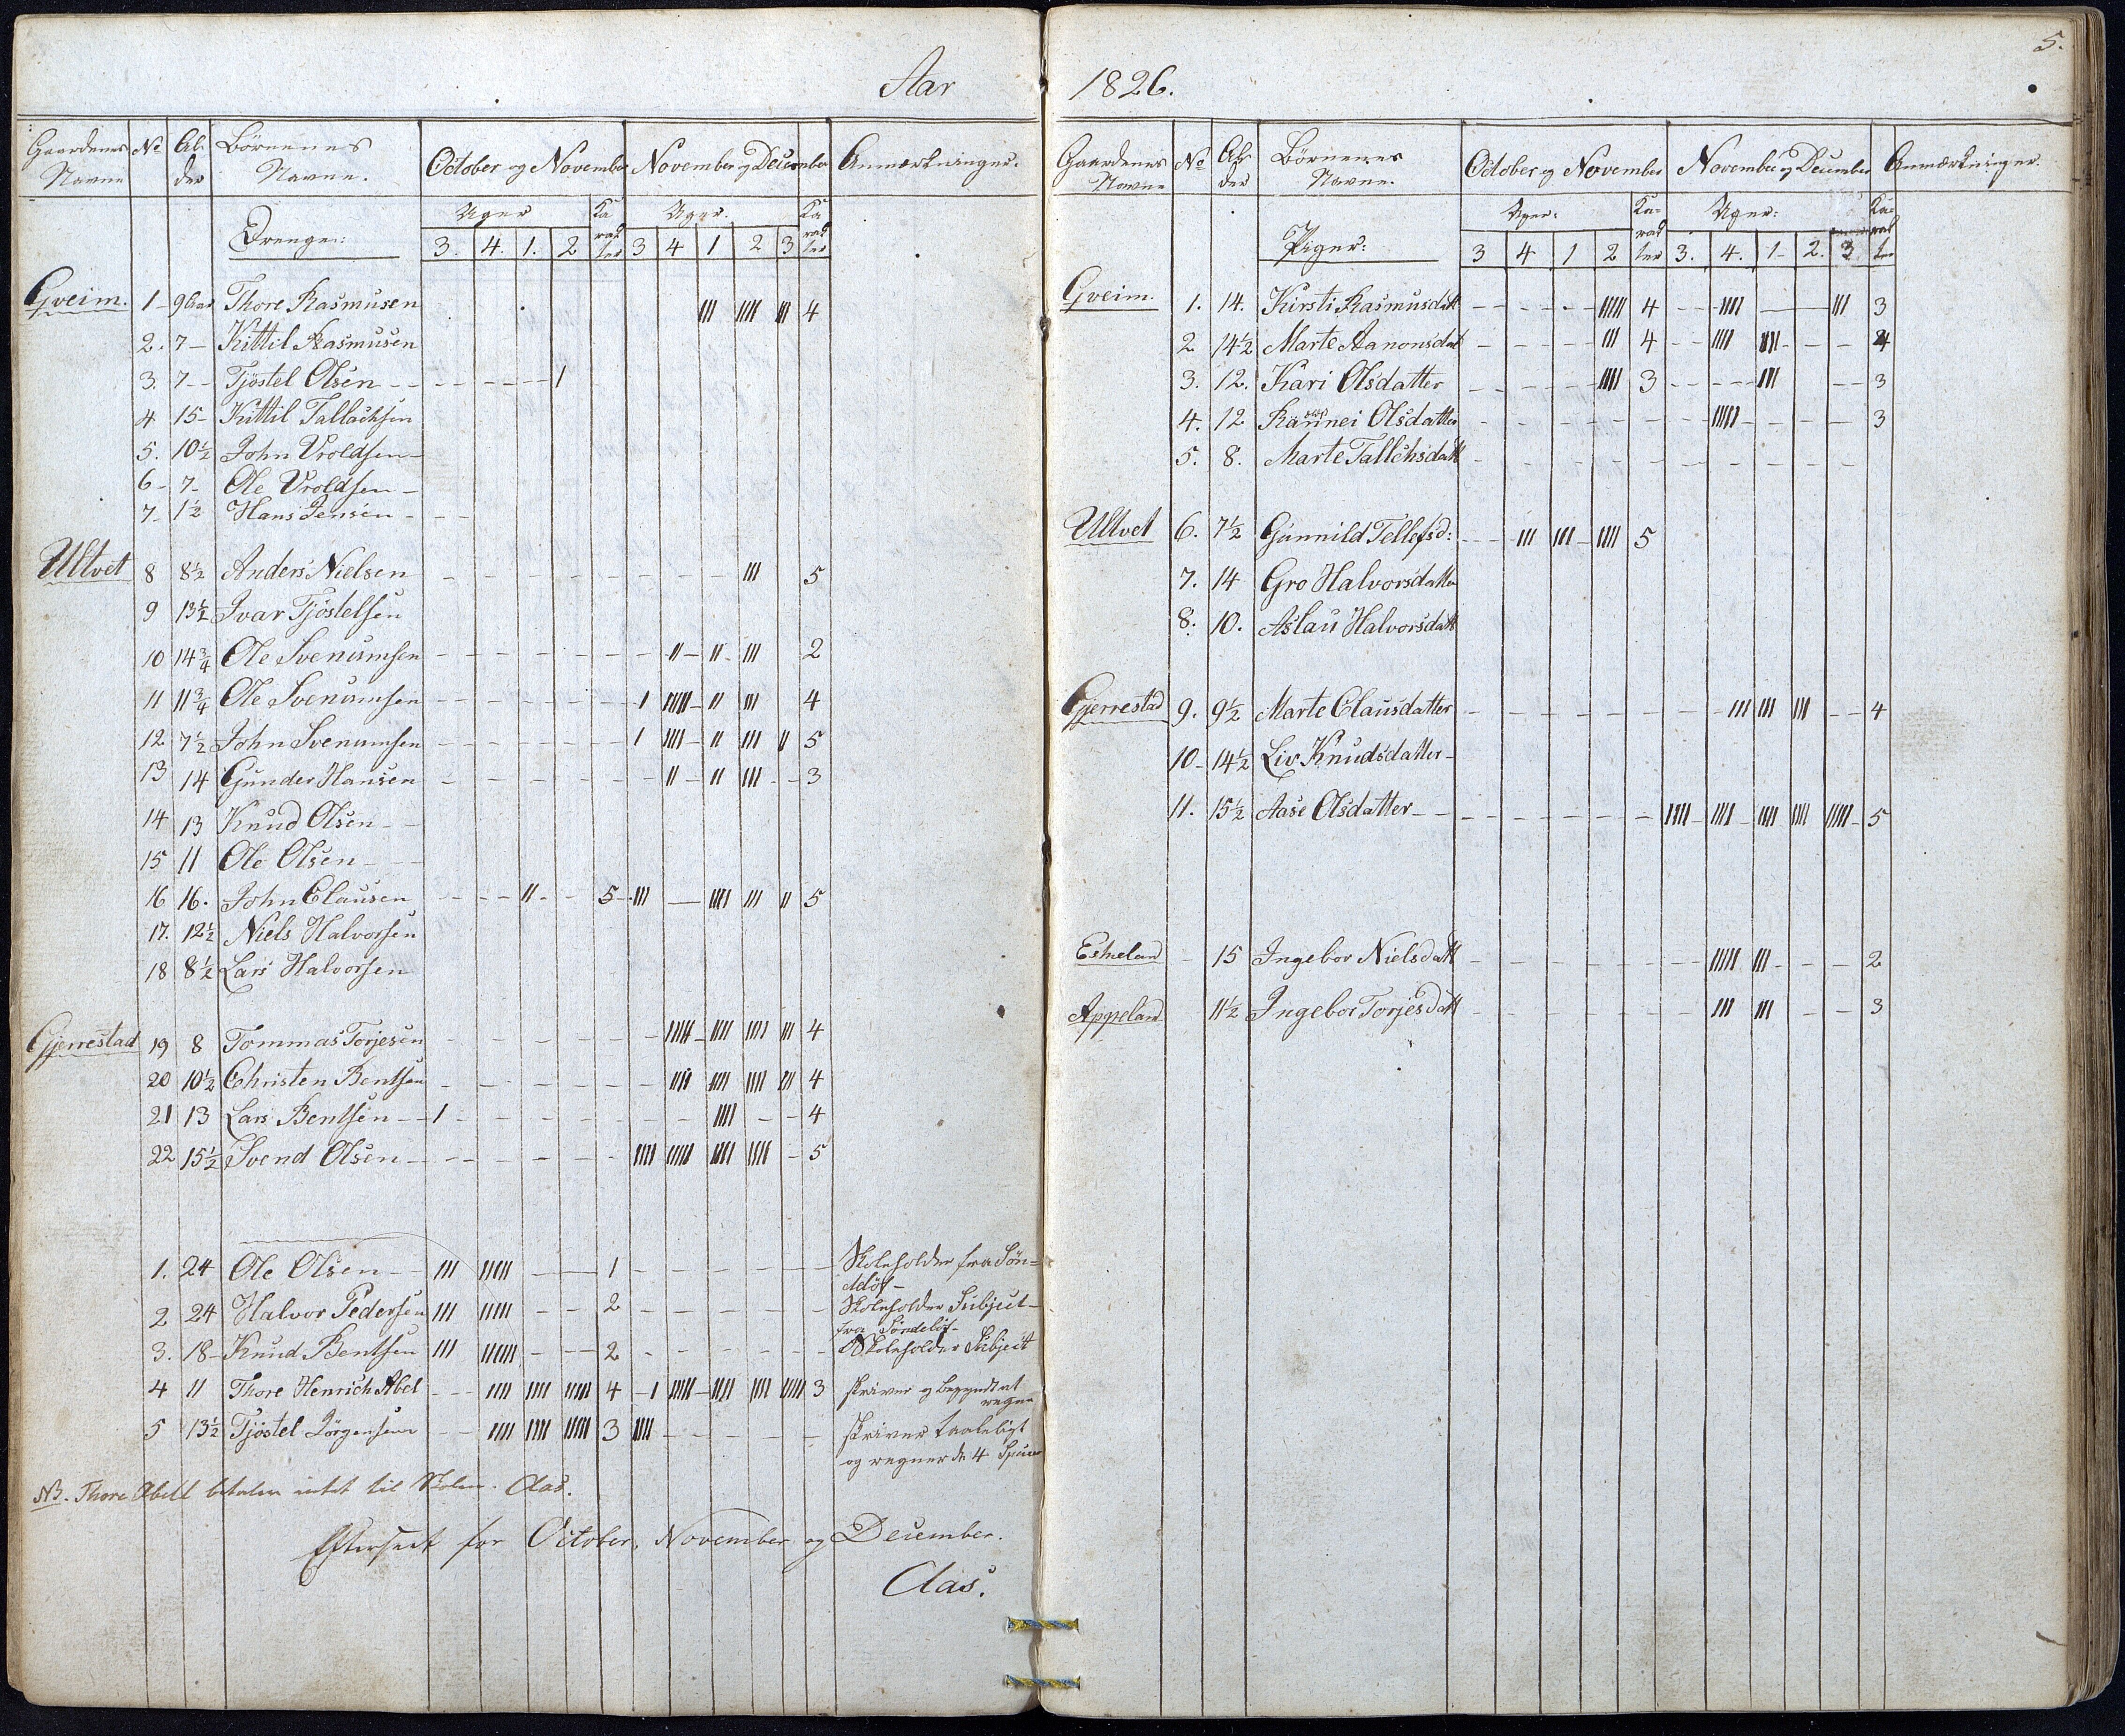 Aar
Gaardenes Navne | No | Al- der | Börnenes Navne. | October og November | November og December | Anmærkninger.
Drenge: | Uger 3. 4. 1. 2 | Ka rak ter | Uger. 3 4 1 2 3 | Ka rak ter
Gveim. 1 - 9 Aar Thore Rasmusen III IIII III 4
2. 7 - Kittil Rasmusen
3. 7 - - Tjöstel Olsen - - - - - - - 1
4 15 - Kittil Tallachsen
5. 10½ John Vroldsen -
6 - 7 - Ole Vroldsen -
7 - 1½ Hans Jensen - - -
Ultvet 8 8½ Anders Nielsen - - - - - - - - III 5
9 13½ Ivar Tjöstelsen
10 14¾ Ole Svenumsen - - - - - - II - II - III 2
11 11¾ Ole Svenumsen - - - - - - I IIIII - II III 4
12 7½ John Svenumsen - - - - - - I IIII - II III II 5
13 14 Gunder Hansen - - - - - - II - II III - - 3
14 13 Knud Olsen - -
15 11 Ole Olsen - - -
16 16. John Clausen - - - II - - 5 - III — IIII III II 5
17. 12½ Niels Halvorsen
18 8½ Lars Halvorsen
Gjerrestad 19 8 Tommas Torjesen - - - - - - IIIII - IIII IIII III 4
20 10½ Christen Bentsen - - - - - - IIII IIII IIII III 4
21 13 Lars Bentsen - - 1 - - - - - - - IIII - - 4
22 15½ Svend Olsen - - - - - - IIII IIIII IIII IIII - 5
1. 24 Ole Olsen - - III IIIII - — 1 - - - - - Skoleholder fra Sön=
delöf -
2 24 Halvor Pedersen III IIIII - - 2 - - - - - Skoleholder Subject -
fra Söndelöf -
3. 18 - Knud Bentsen III IIIIII - - - 2 - - - - - Skoleholder Subject
4 11 Thore Henrich Abel - - - IIII IIII IIIII 4 - I IIIII - IIII IIII IIIII 3 skriver og begyndt at
regne
5 13½ Tjöstel Jörgensen - - IIII IIII IIIII 3 IIII - - - - - skriver taaleligt
og regner de 4 Species
NB. Thore Abell betaler intet til Skolen. Aas.
Efterseet for October, November og December.
Aas.
5.
1826.
Gaardenes Navne | No | Al- der | Börnenes Navne. | October og November | November og December | Anmærkninger.
Piger: | Uger: 3 4 1 2 | Ka- rak ter | Uger: 3. 4. 1 - 2. 3 | Ka- rak ter
Gveim. 1. 14. Kirsti Rasmusdatt - - - - - IIIII 4 - - IIII - — III 3
2 14½ Marte Aanonsdat - - - - - III 4 - - IIII III - - - 4
3. 12. Kari Olsdatter - - - - - IIII 3 - - - - III - - 3
4. 12 Rannei Olsdatter - - - - - - - IIIII - - - - 3
5. 8. Marte Tallchsdatt - - - - - - - - - - -
Ultvet 6. 7½ Gunnild Tellefsd: - - III III - IIII 5
7. 14 Gro Halvorsdatter
8. 10. Aslau Halvorsdatt
Gjerrestad 9. 9½ Marte Clausdatter - - - - - - - III IIII III - - 4
10 - 14½ Liv Knudsdatter -
11. 15½ Aase Olsdatter - - - - - - - IIII - IIII - IIII IIII IIIII - 5
Eskeland - 15 Ingebor Nielsdatt - - - - - - IIIII III - - - 2
Appeland 11½ Ingebor Torjesdatt - - - - - - III III - - 3